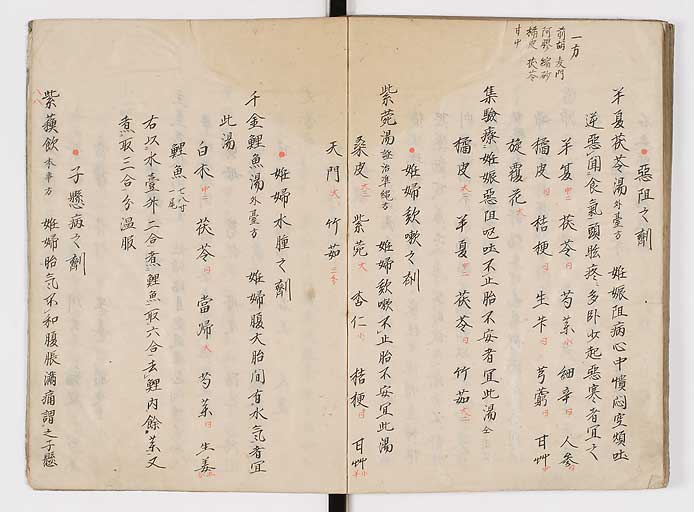 一方
前胡 麦門
阿膠 縮砂
橘皮 茯苓
甘艸
惡阻之劑
半夏茯苓湯 外臺方 妊娠阻病心中憒悶空煩吐
逆惡聞食氣頭眩疼多卧少起惡寒者宜之
半夏 茯苓 芍薬 細辛 人参
橘皮 桔梗 生芐 芎藭 甘艸
旋覆花
集驗療妊娠惡阻吐不止胎不安者宜此湯
橘皮 半夏 茯苓 竹茹
妊婦欬嗽之劑
紫菀湯 證治準繩方 妊婦欬嗽不止胎不安宜此湯
桑皮 紫菀 杏仁 桔梗 甘艸
天門 竹茹
妊婦水腫之劑
千金鯉魚湯 外臺方 妊婦腹大胎間有水氣者宜
此湯
白朮 茯苓 當歸 芍薬 生姜
鯉魚 一尾
右以水壹升二合煮鯉魚取六合去鯉内餘薬又
煮取三合分温服
子懸病之劑
紫蘓飲 本事方 妊婦胎氣不和腹脹滿痛謂之子懸